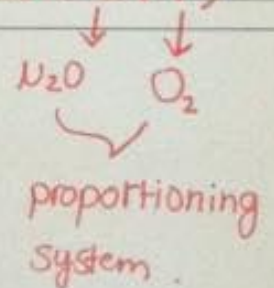 N₂O O₂
proportioning
system.